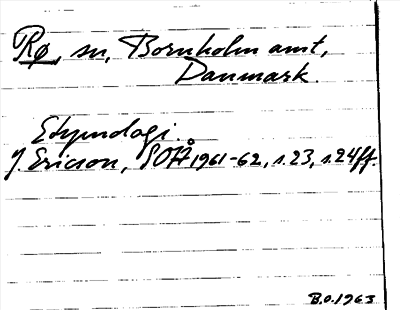 Rø, sn, Bornholm amt,
Danmark.
Etymologi.
J. Ericson, SOÅ 1961-62, s. 23, s. 24ff.
B.O. 1963